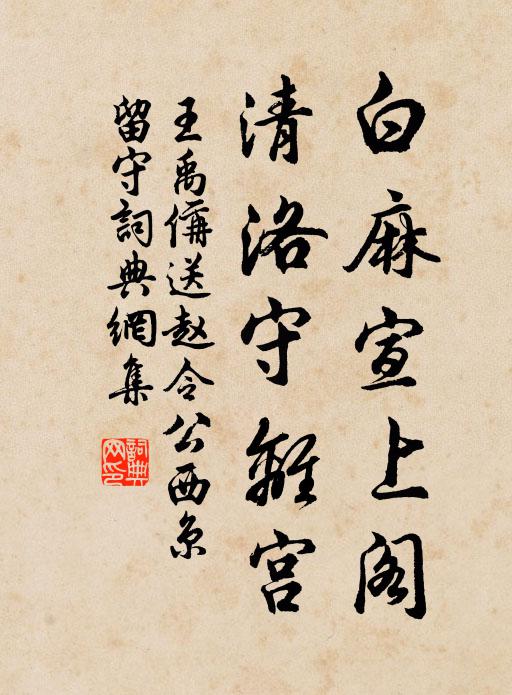 白麻宣上阁
清洛守離宫
王禹偁送赵令公西京
留守詞典網集
詞典網印